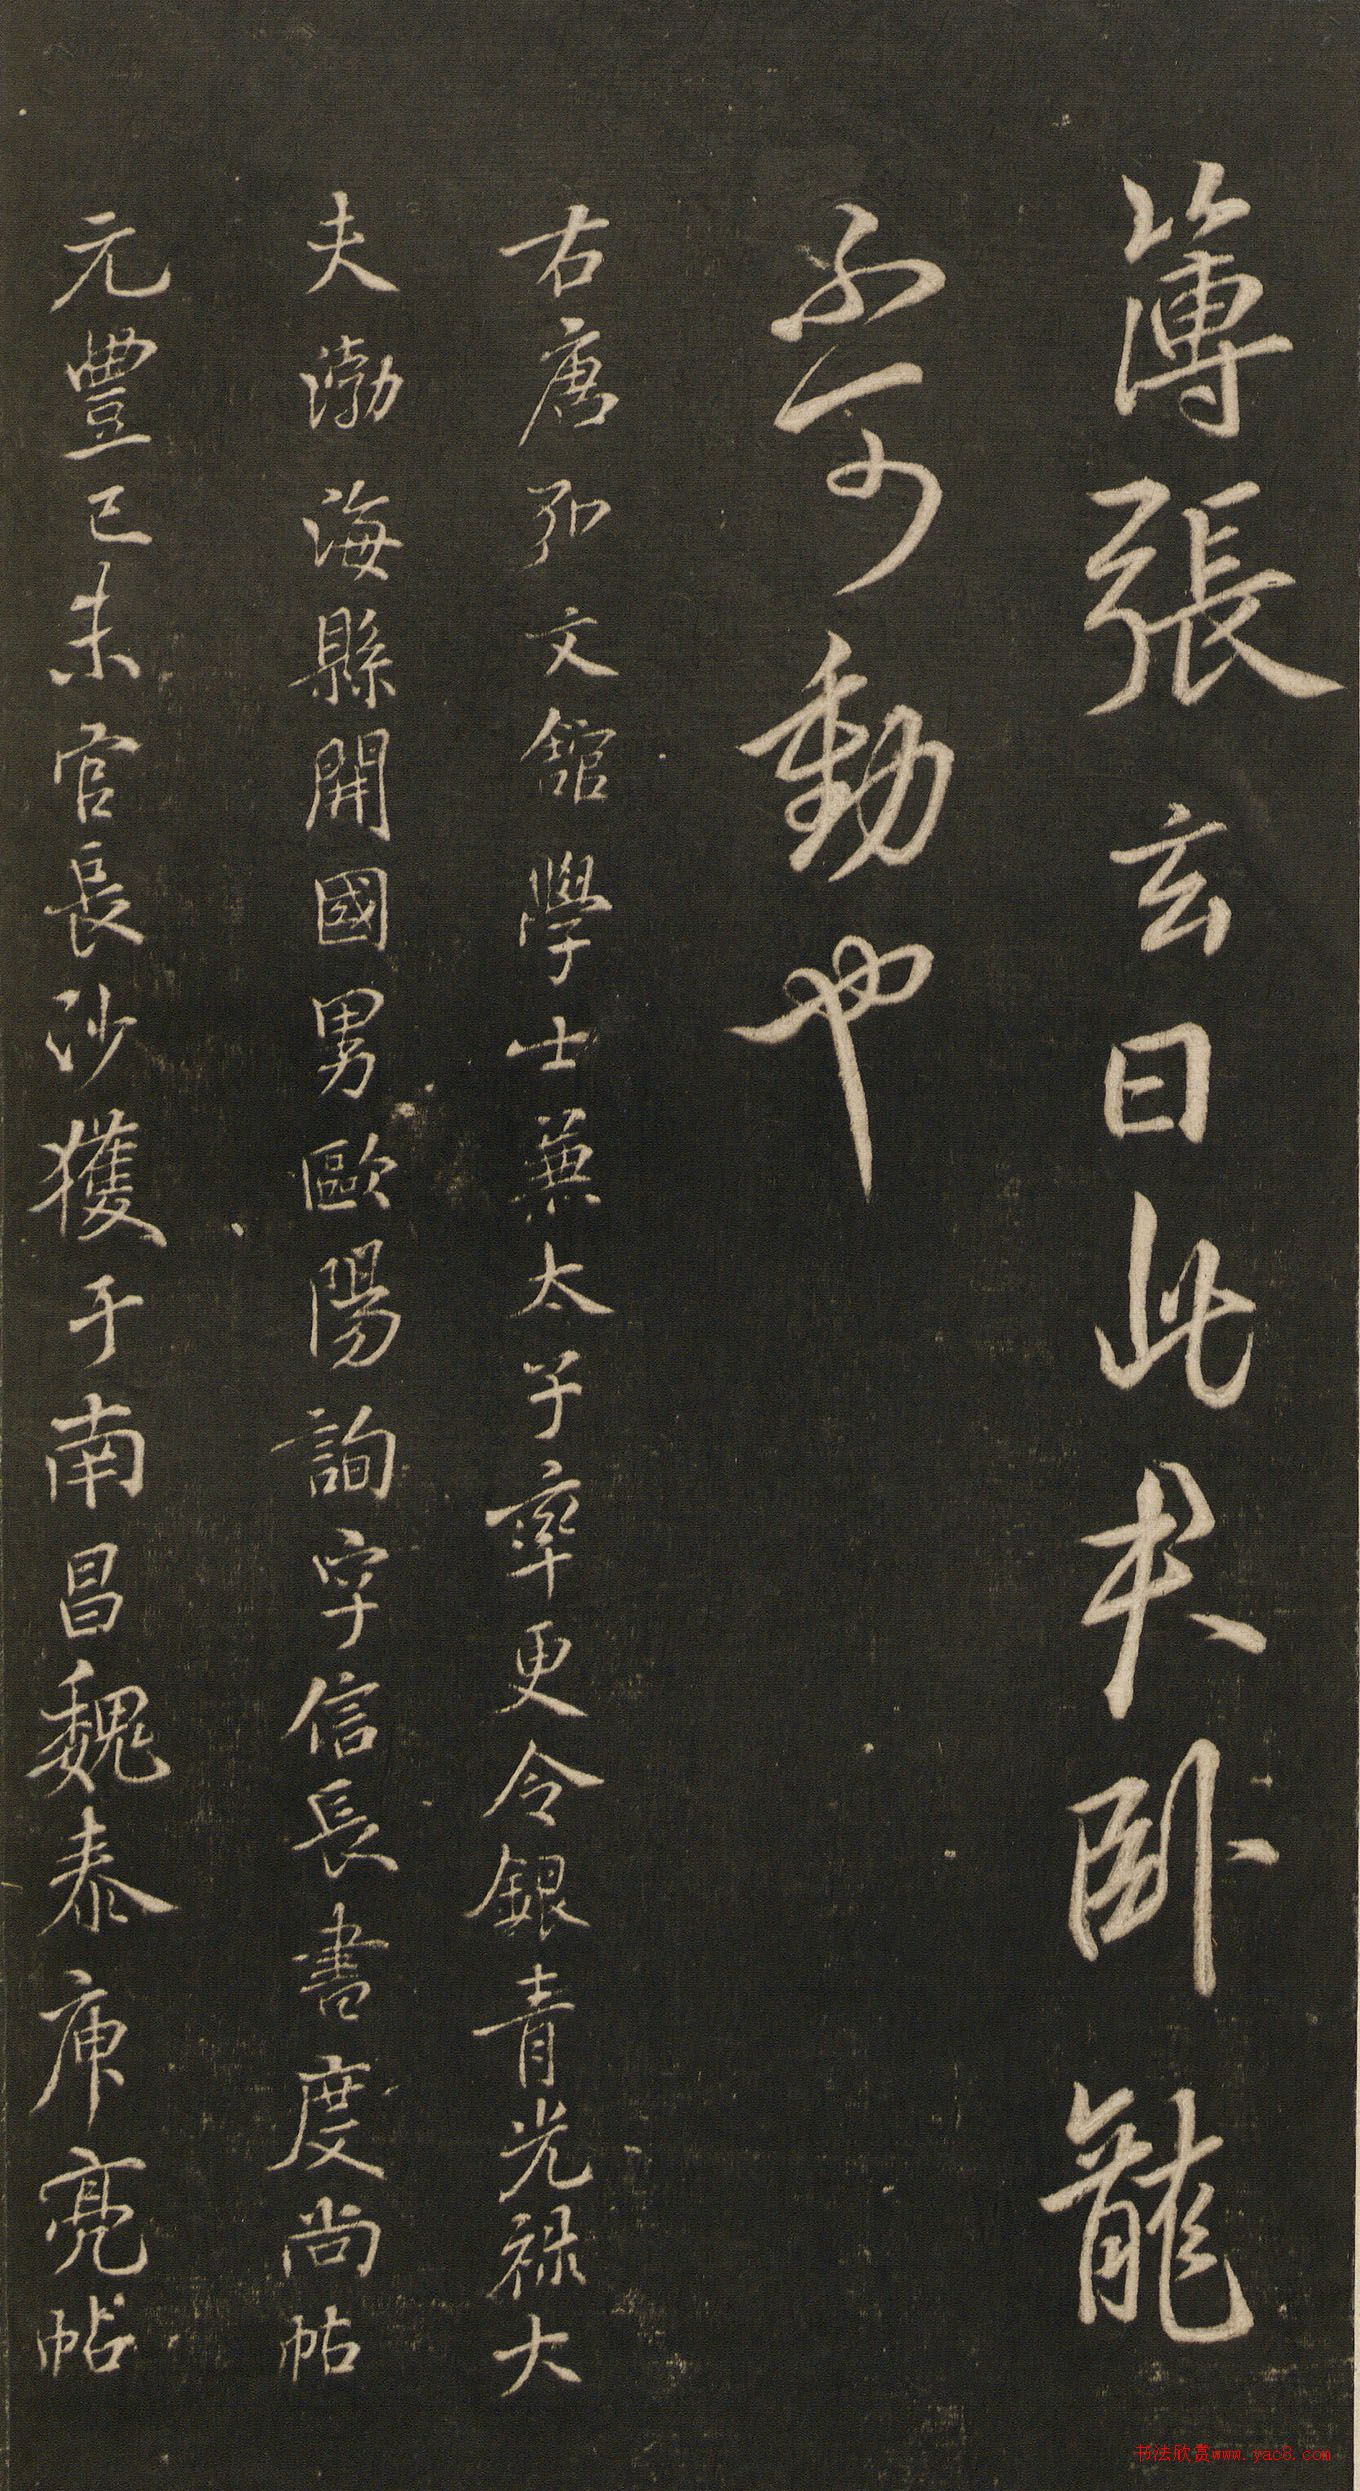 簿張玄曰此夫卧龍
不可動也
右唐弘文館學士兼太子率更令銀青光祿大
夫渤海縣開國男歐陽詢字信長書度尚帖
元豐己未官長沙獲于南昌魏泰庾亮帖
书法欣赏www.yac8.com